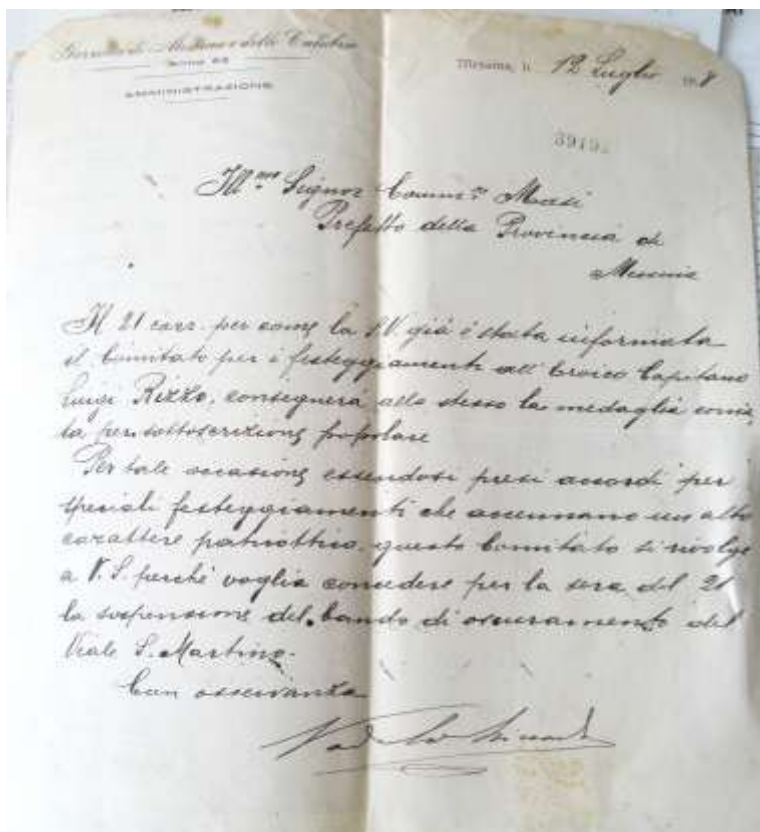 Gazzetta di Messina e delle Calabrie
Anno 56
AMMINISTRAZIONE
Messina, li 12 Luglio 1918
Ill.mo Signor Comm.re Masi
Prefetto della Provincia di
Messina
Il 21 corr. per come la S.V. già è stata informata
il Comitato per i festeggiamenti all'Eroico Capitano
Luigi Rizzo, consegnerà allo stesso la medaglia conia
ta per sottoscrizione popolare
Per tale occasione essendosi presi accordi per
speciali festeggiamenti che assumano un alto
carattere patriottico, questo Comitato si rivolge
a V.S. perchè voglia concedere per la sera del 21
la sospensione del bando di oscuramento del
Viale S. Martino.
Con osservanza